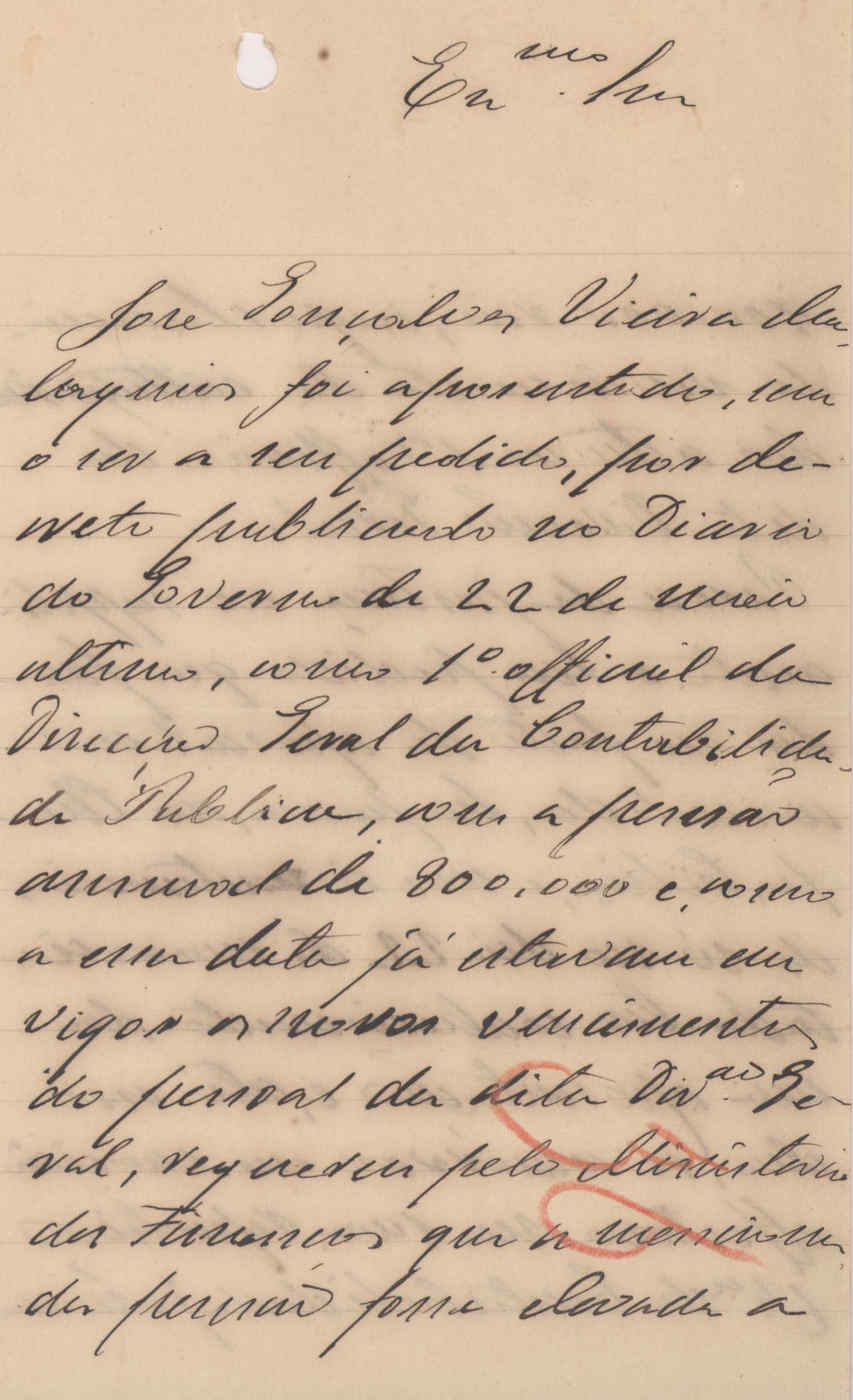 Exmo. Snr
José Gonçalves Vieira Ma-
laquias foi aposentado, sem
o ser a seu pedido, por de-
creto publicado no Diario
do Governo de 22 de maio
ultimo, como 1º official da
Direcção Geral da Contabilida-
de Publica, com a pensão
annual de 800,000 e, como
a essa data já estavam em
vigor os novos vencimentos
do pessoal da dita Dir.ão Ge-
ral, requereu pelo Ministerio
das Finanças que a menciona-
da pensão fosse elevada a